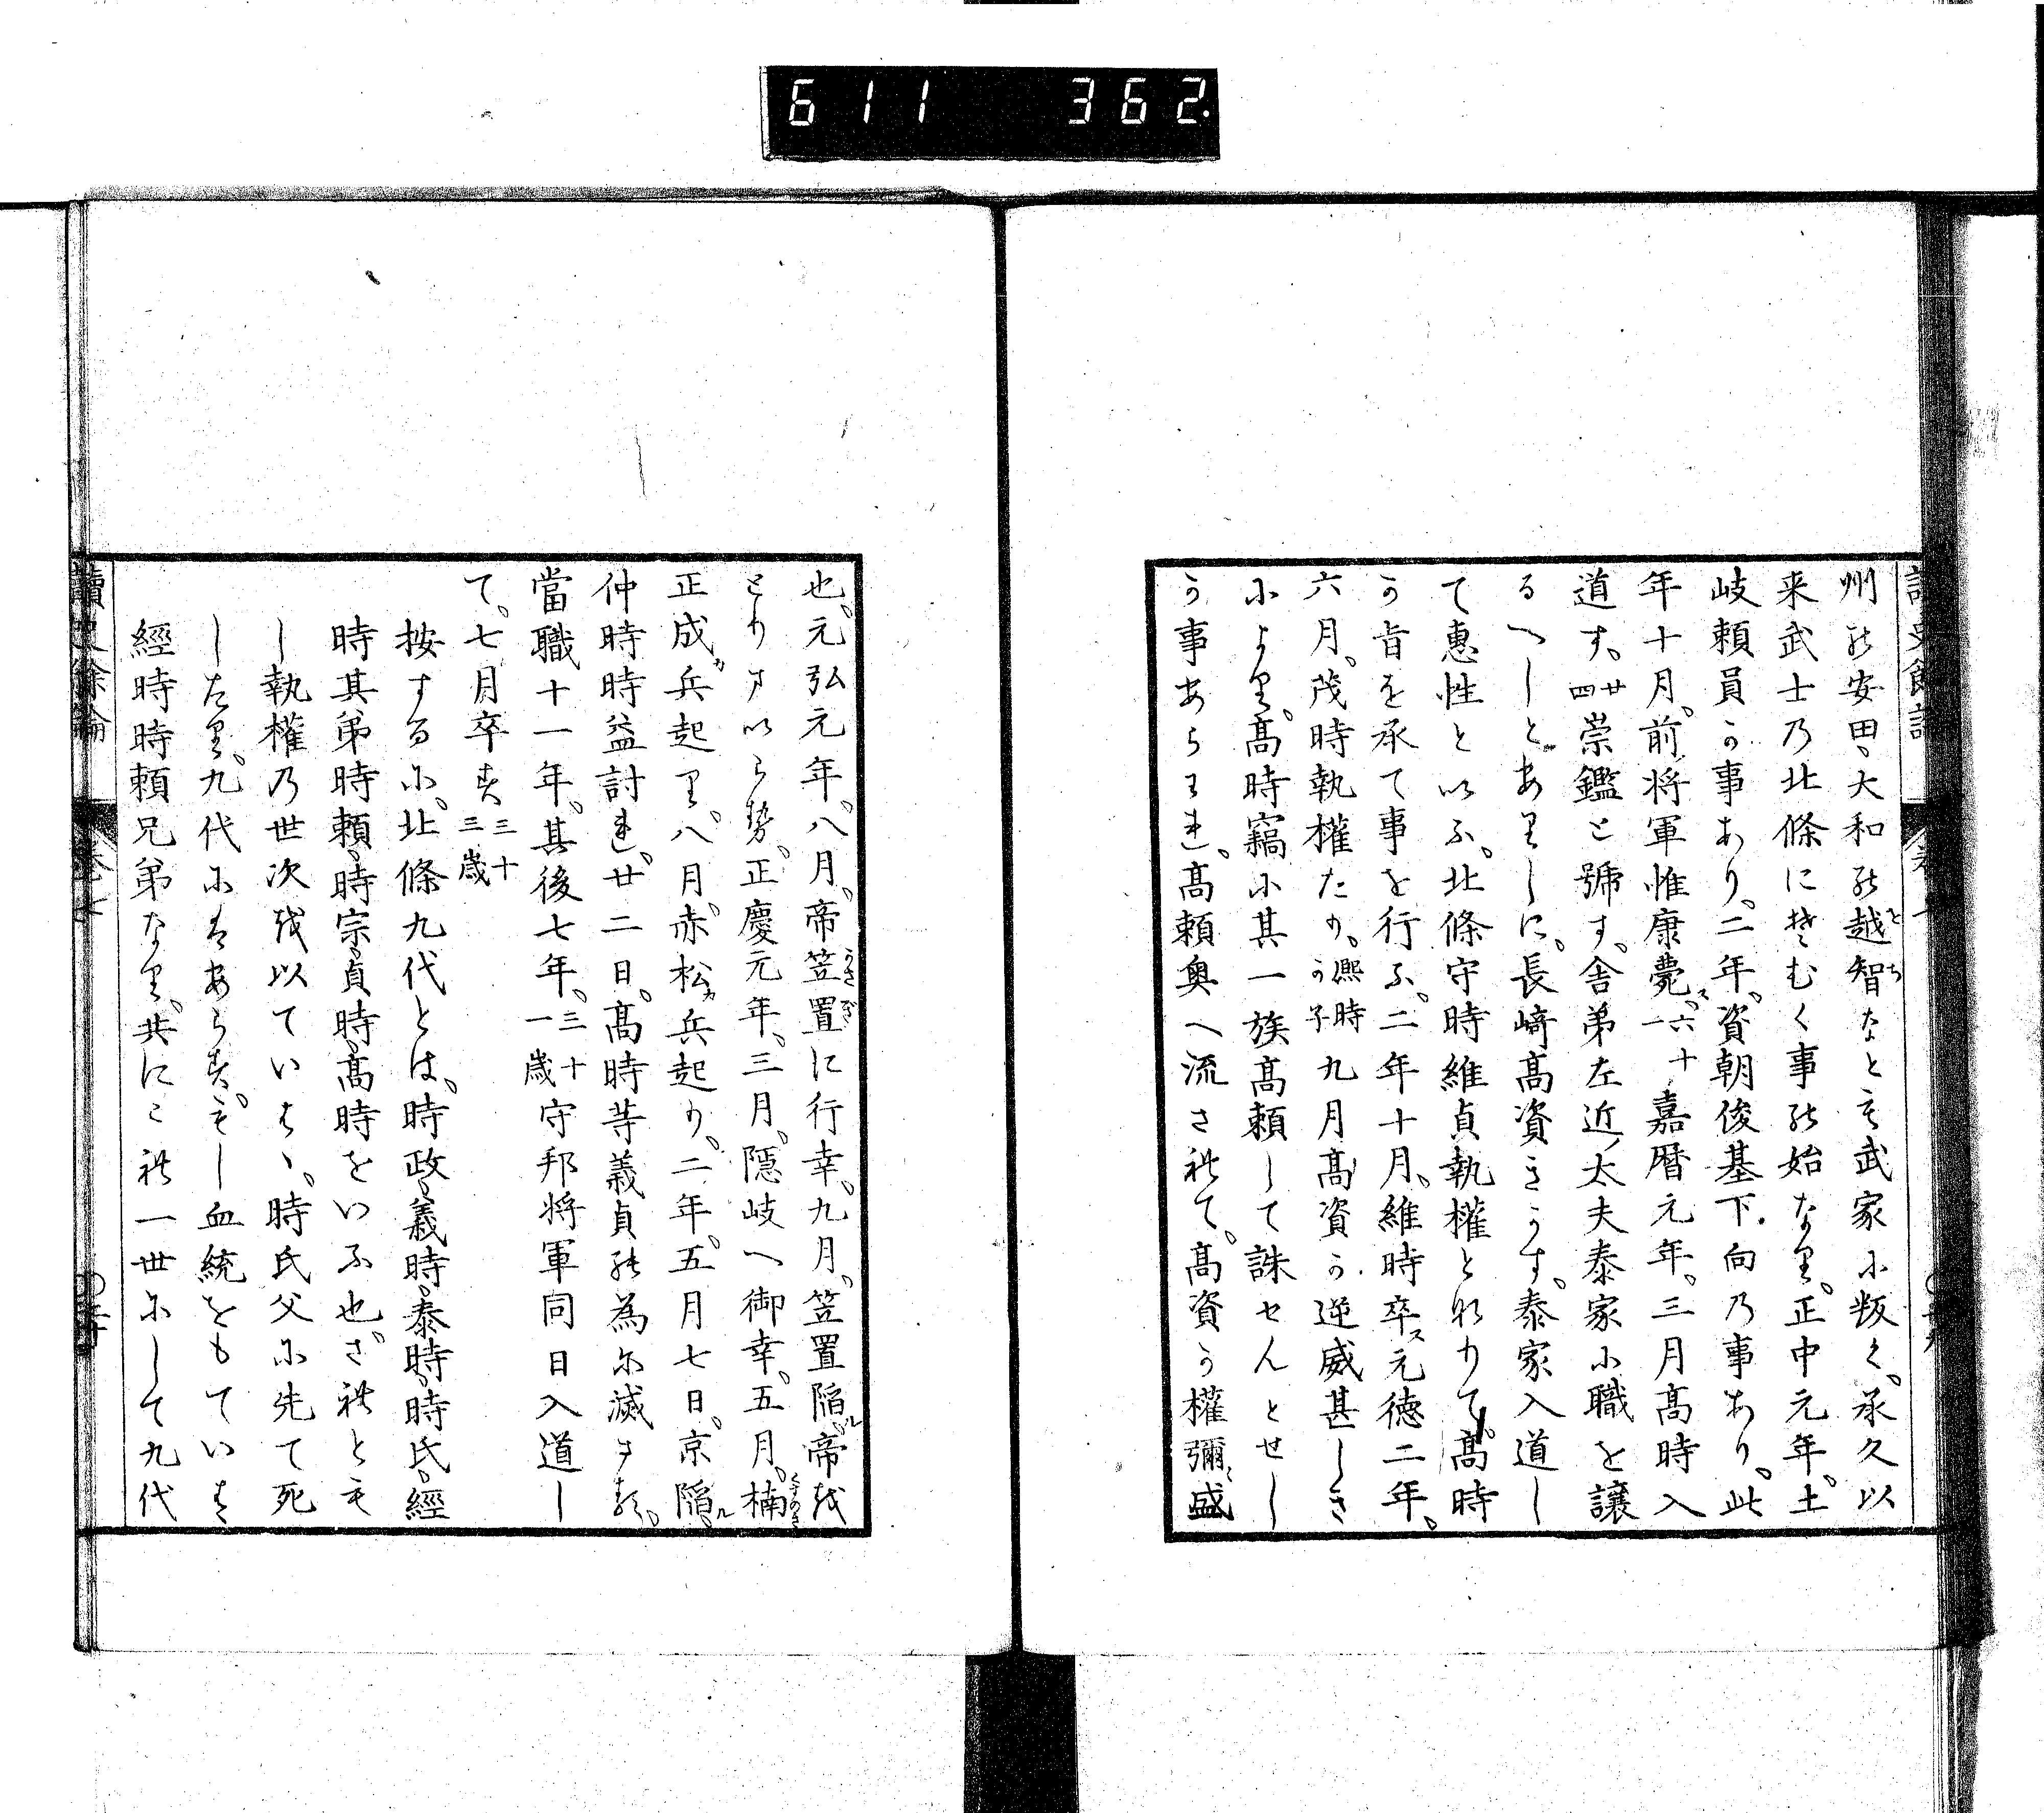 611 362.
州の安田、大和の越智なとも武家に叛く。承久以
来武士乃北條にそむく事の始なり。正中元年。土
岐頼員か事あり。二年。資朝俊基下向乃事あり。此
年十月。前将軍惟康薨ス。六十一嘉暦元年。三月高時入
道す。廿四崇鑑と號す。舎弟左近ノ太夫泰家に職を譲
るへしとありしに。長﨑高資きかす。泰家入道し
て恵性といふ。北條守時維貞執權となりて。高時
か旨を承て事を行ふ。二年十月。維時卒ス元徳二年。
六月。茂時執權たり。熈時か子九月高資か逆威甚しき
により。高時竊に其一族高頼して誅せんとせし
か事あらはれ。高頼奥へ流されて。高資か權彌盛
也。元弘元年。八月。帝笠置に行幸。九月。笠置陥ル帝を
とりまいらせ。正慶元年。三月。隠岐へ御幸。五月。楠
正成カ兵起り。八月。赤松カ兵起り。二年。五月七日。京陥ル。
仲時時益討れ。廿二日。高時等義貞の為に滅さる。
當職十一年。其後七年。三十一歳守邦将軍同日入道し
て。七月卒す三十三歳
按するに。北條九代とは。時政。義時。泰時。時氏。經
時其弟時頼。時宗。貞時。高時をいふ也。されとも
し執權乃世次を以ていはゝ。時氏父に先て死
したり。九代にはあらす。もし血統をもていはは
經時時頼兄弟なり。共にこれ一世にして九代
讀史餘論 巻七